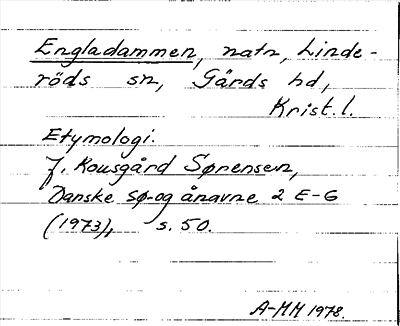 Engladammen, natn, Linde-
röds sn, Gärds hd,
Krist. l.
Etymologi.
J. Kousgård Sørensen,
Danske sø- og ånavne 2 E-G
(1973), s. 50.
A-MH 1978.